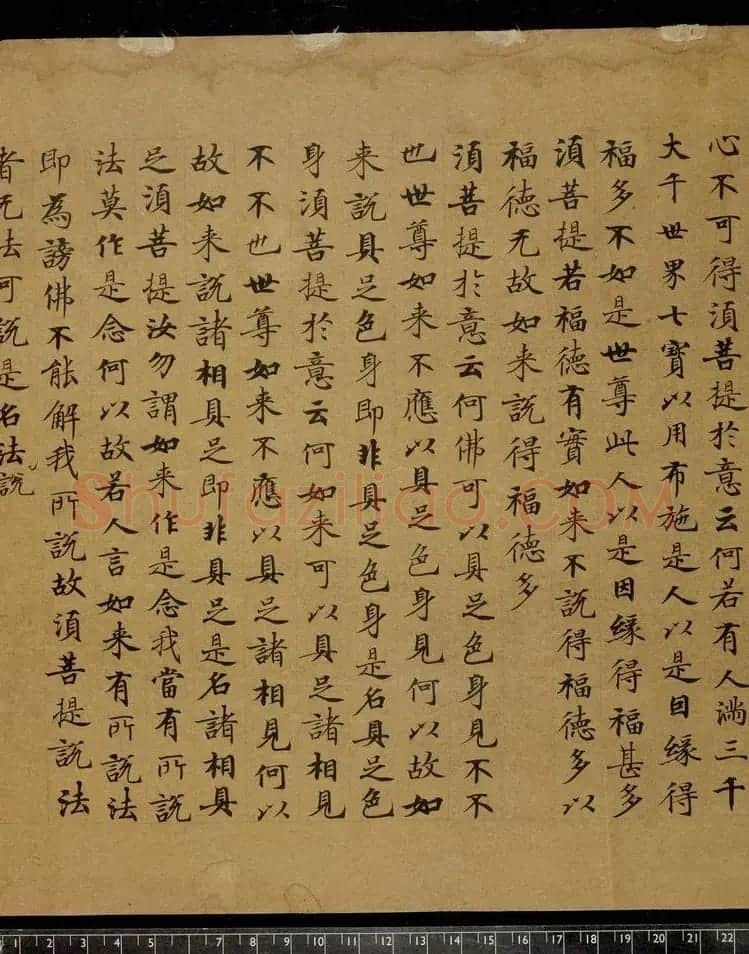 心不可得湏菩提於意云何若有人満三千
大千世界七寳以用布施是人以是因縁得
福多不如是世尊此人以是因縁得福甚多
湏菩提若福德有實如来不說得福德多以
福德无故如来說得福德多
湏菩提於意云何佛可以具足色身見不不
也世尊如来不應以具足色身見何以故如
来說具足色身即非具足色身是名具足色
身湏菩提於意云何如来可以具足諸相見
不不也世尊如来不應以具足諸相見何以
故如来說諸相具足即非具足是名諸相具
足湏菩提汝勿謂如来作是念我當有所說
法莫作是念何以故若人言如来有所說法
即為謗佛不能解我所說故湏菩提說法
者无法可說是名法說
Shufaziliao.COM
1 2 3 4 5 6 7 8 9 10 11 12 13 14 15 16 17 18 19 20 21 22